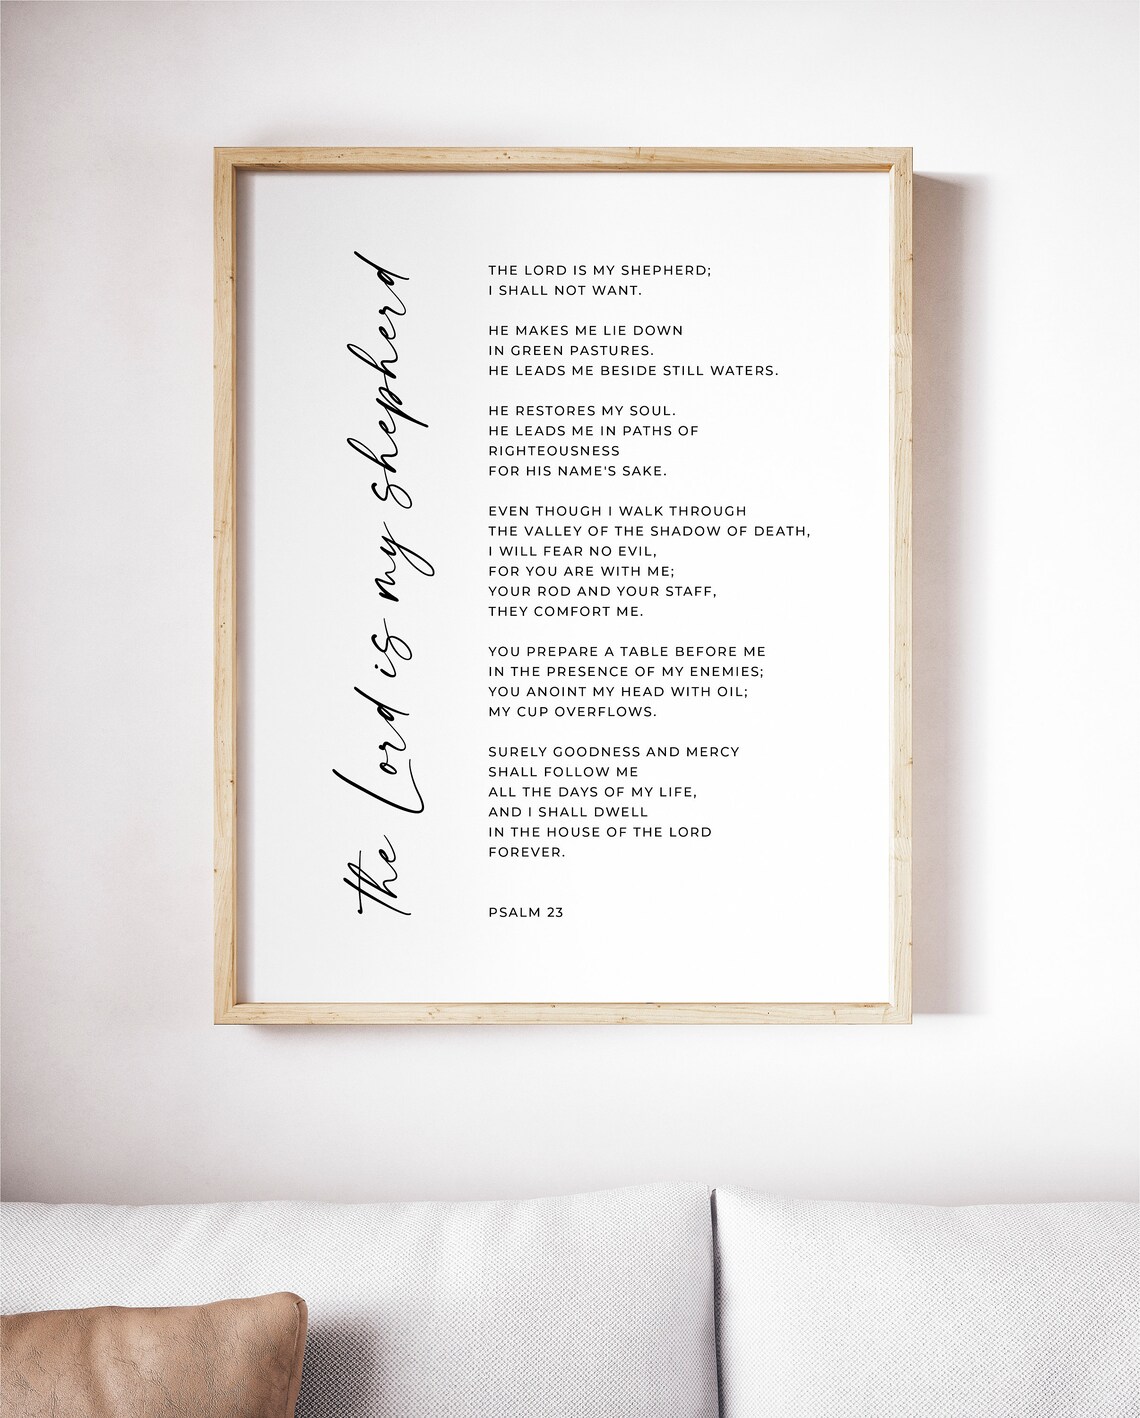 the Lord is my shepherd
THE LORD IS MY SHEPHERD;
I SHALL NOT WANT.
HE MAKES ME LIE DOWN
IN GREEN PASTURES.
HE LEADS ME BESIDE STILL WATERS.
HE RESTORES MY SOUL.
HE LEADS ME IN PATHS OF
RIGHTEOUSNESS
FOR HIS NAME'S SAKE.
EVEN THOUGH I WALK THROUGH
THE VALLEY OF THE SHADOW OF DEATH,
I WILL FEAR NO EVIL,
FOR YOU ARE WITH ME;
YOUR ROD AND YOUR STAFF,
THEY COMFORT ME.
YOU PREPARE A TABLE BEFORE ME
IN THE PRESENCE OF MY ENEMIES;
YOU ANOINT MY HEAD WITH OIL;
MY CUP OVERFLOWS.
SURELY GOODNESS AND MERCY
SHALL FOLLOW ME
ALL THE DAYS OF MY LIFE,
AND I SHALL DWELL
IN THE HOUSE OF THE LORD
FOREVER.
PSALM 23